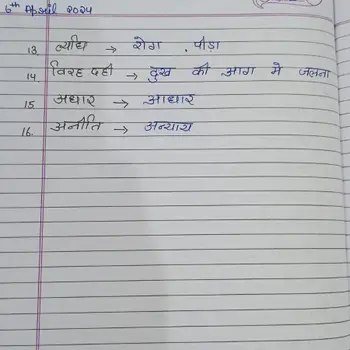 6th April 2024
13. व्याधि → रोग, पीड़ा
14. विरह दही → दुख की आग मे जलना
15 अधार → आधार
16. अनीति → अन्याय